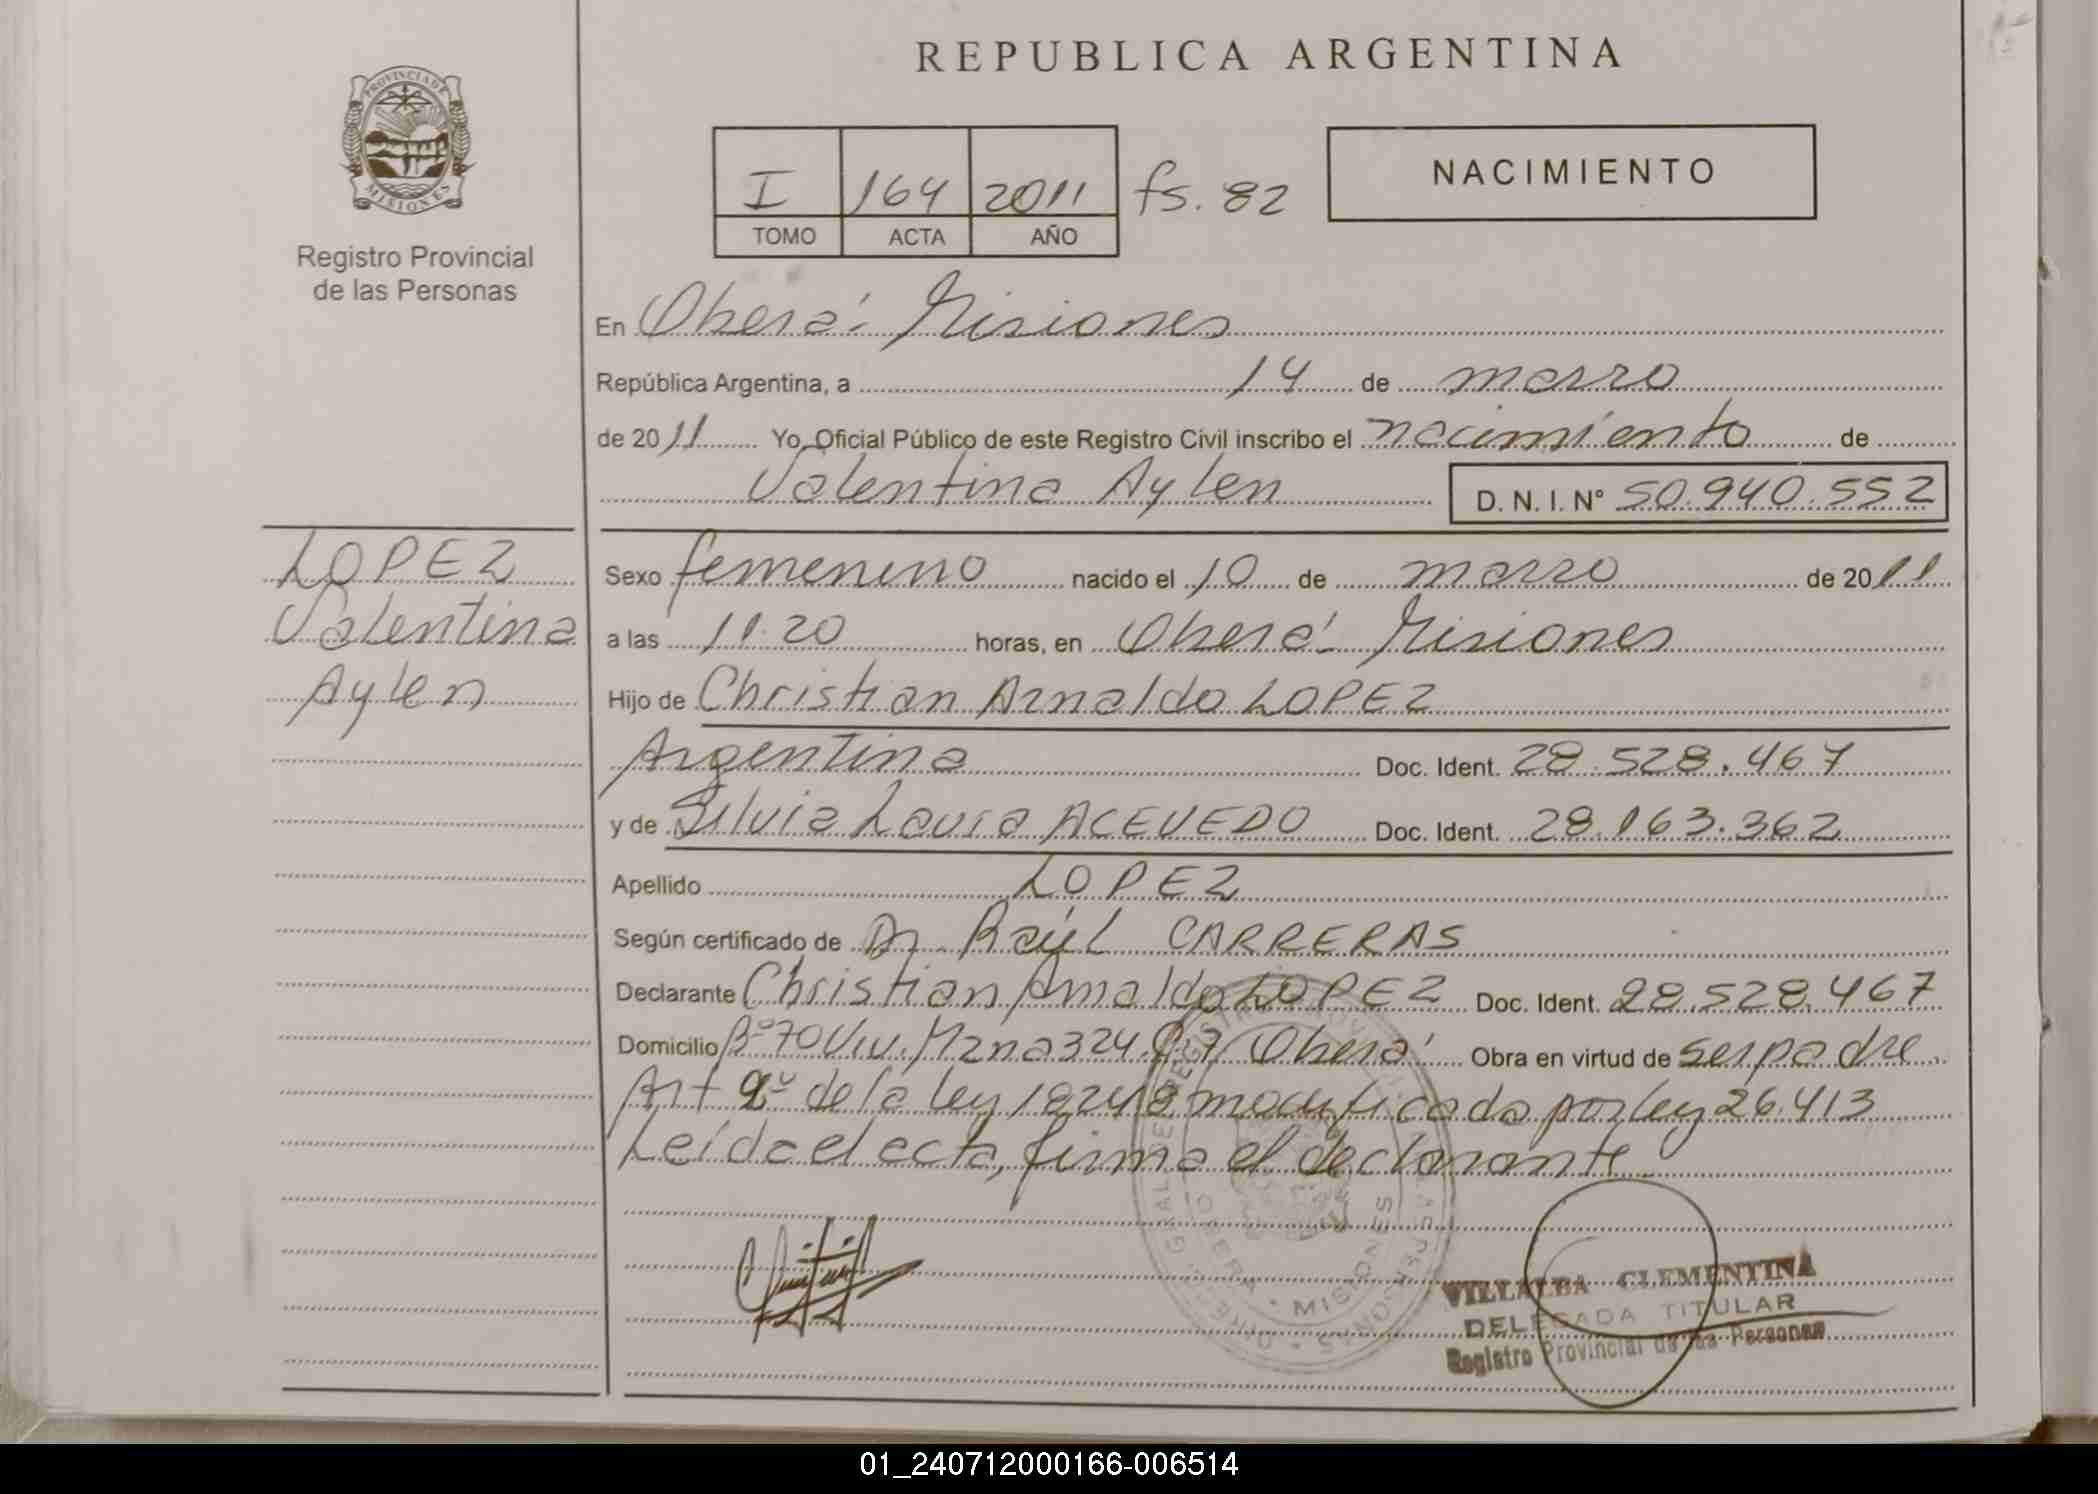 REPUBLICA ARGENTINA
PROVINCIA DE
MISIONES
Registro Provincial
de las Personas
I 164 2011 fs. 82
TOMO ACTA AÑO
NACIMIENTO
En Oberá - Misiones
República Argentina, a 14 de marzo
de 2011 Yo, Oficial Público de este Registro Civil inscribo el nacimiento de
Valentina Aylen D. N. I. N° 50.940.552
LOPEZ
Valentina
Aylen
Sexo femenino nacido el 10 de marzo de 2011
a las 11.20 horas, en Oberá - Misiones
Hijo de Christian Arnaldo LOPEZ
Argentina Doc. Ident. 28.528.467
y de Silvia Laura ACEVEDO Doc. Ident. 28.163.362
Apellido LOPEZ
Según certificado de Dr. Raúl CARRERAS
Declarante Christian Arnaldo LOPEZ Doc. Ident. 28.528.467
Domicilio B° 70 Viv. Mzna 324 Oberá Obra en virtud de ser padre
Art 2° de la ley 18248 modificada por ley 26.413
Leída el acta, firma el declarante
OBERA • MISIONES
VILLALBA CLEMENTINA
DELEGADA TITULAR
Registro Provincial de las Personas
01_240712000166-006514